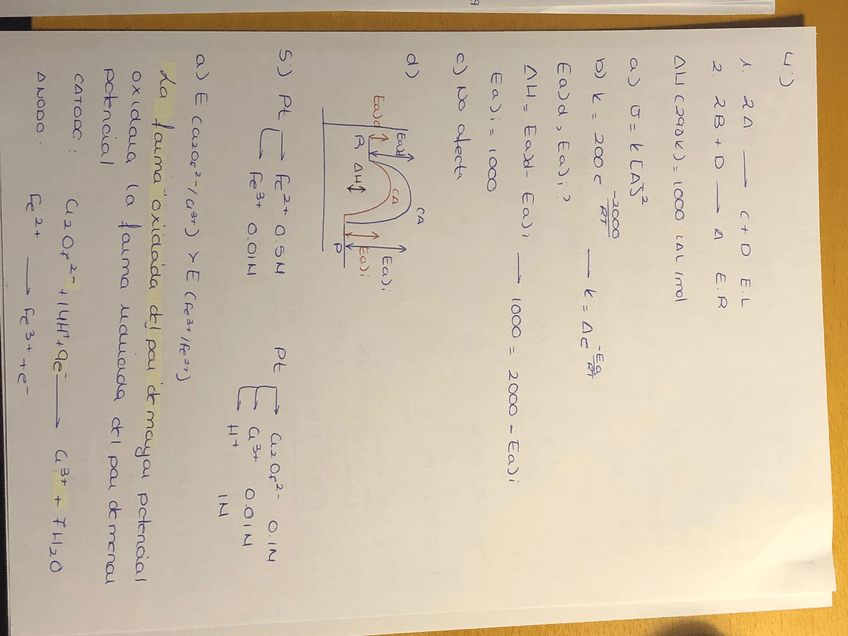 4:)
1. 2A → C + D E.L
2. 2B + D → A E.R
ΔH (298K) = 1000 cal/mol
a) v = k [A]²
b) k = 200 e^(-2000/RT) → k = A e^(-Ea/RT)
Ea)d, Ea)i?
ΔH = Ea)d - Ea)i → 1000 = 2000 - Ea)i
Ea)i = 1000
c) No afecta
d)
CA
CA
Ea)d
Ea)d
R
ΔH
Ea)i
Ea)i
P
5:) Pt
Fe²⁺ 0.5N
Fe³⁺ 0.01N
Pt
Cr₂O₇²⁻ 0.1N
Cr³⁺ 0.01N
H⁺ 1N
a) E (Cr₂O₇²⁻/Cr³⁺) > E (Fe³⁺/Fe²⁺)
La forma "oxidada del par de mayor potencial
oxidara la forma reducida del par de menor
potencial
CATODO: Cr₂O₇²⁻ + 14H⁺ + 9e⁻ → Cr³⁺ + 7H₂O
ANODO: Fe²⁺ → Fe³⁺ + e⁻